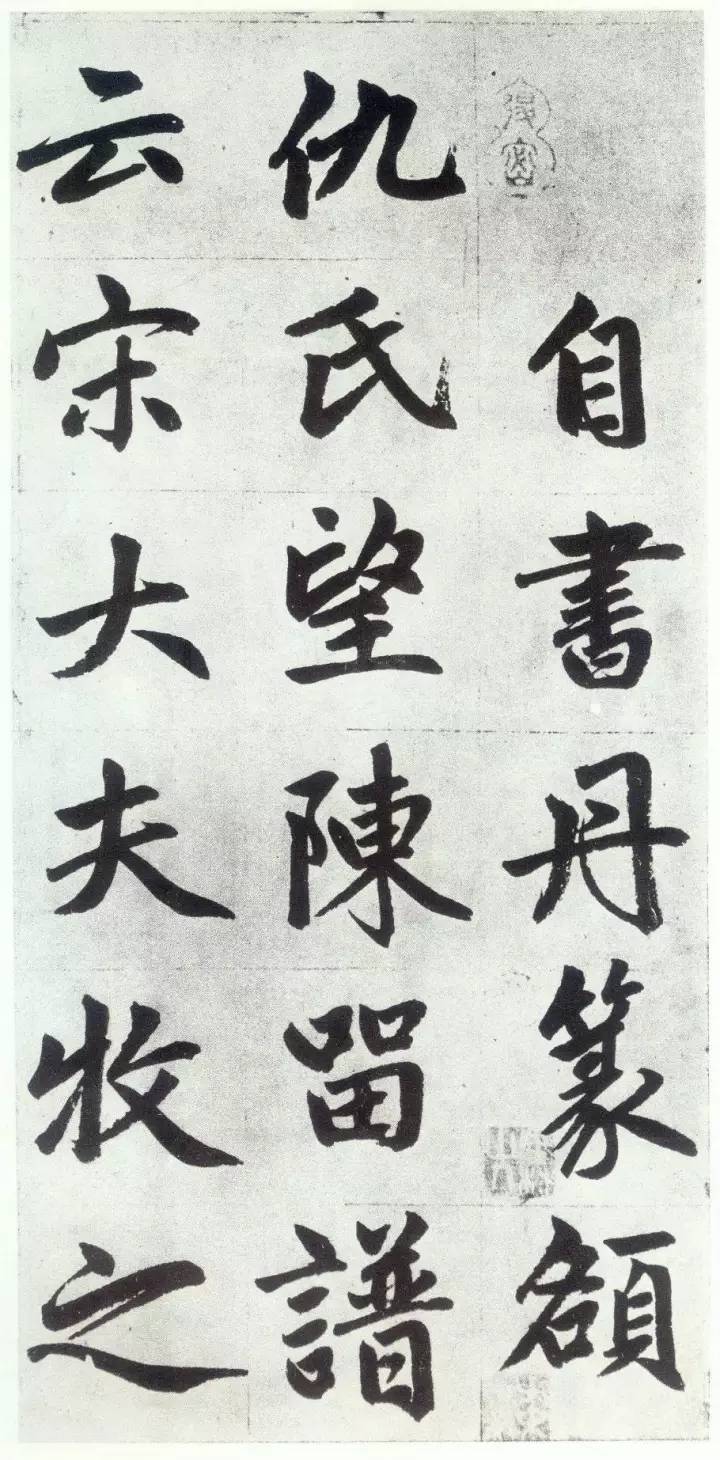 自書丹篆額
仇氏望陳留譜
云宋大夫牧之